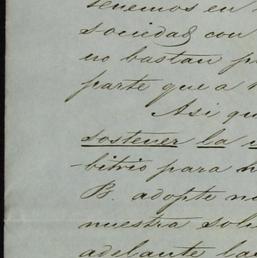 tenemos en
sociedad con
no bastan p
parte que a n
Asi qu
sostener la u
bitrio para h
B. adopte no
nuestra solu
adelante la